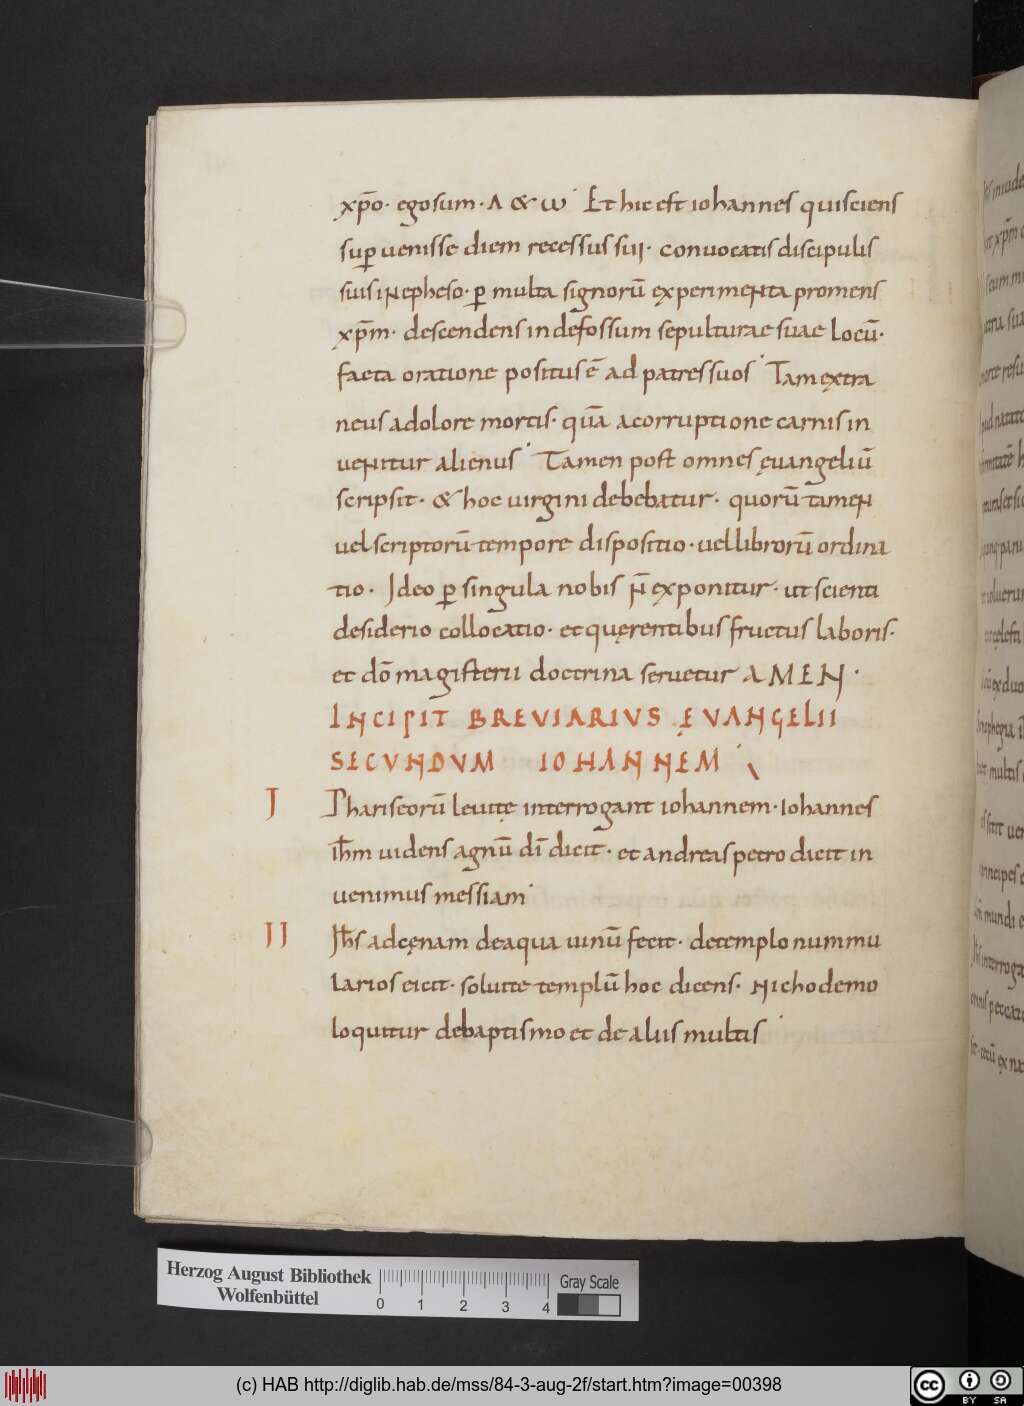 xp̄o· ego sum · Λ & ω· Et hic est iohannes qui sciens
suꝑuenisse diem recessus sui· conuocatis discipulis
suis in epheso· ꝑ multa signorū experimenta promens
xp̄m· descendens in defossum sepulturae suae locū·
facta oratione positus ē ad patres suos· Tam extra
neus a dolore mortis· quā a corruptione carnis in
uenitur alienus· Tamen post omnes ęuangeliū
scripsit· & hoc uirgini debebatur· quorū tamen
uel scriptorū tempore dispositio· uel librorū ordina
tio· Ideo ꝑ singula nobis n̄ exponitur· ut scienti
desiderio collocatio· et quęrentibus fructus laboris·
et dō magisterii doctrina seruetur AMEN·
INCIPIT BREVIARIVS EVANGELII
SECVNDVM IOHANNEM
I Phariseorū leuitę interrogant iohannem· Iohannes
ih̄m uidens agnū dī dicit· et andreas petro dicit in
uenimus messiam·
II Ih̄s ad cęnam de aqua uinū fecit· de templo nummu
larios eicit· soluite templū hoc dicens· nichodemo
loquitur de baptismo et de aliis multis·
Herzog August Bibliothek
Wolfenbüttel
0 1 2 3 4
Gray Scale
(c) HAB http://diglib.hab.de/mss/84-3-aug-2f/start.htm?image=00398
cc BY SA